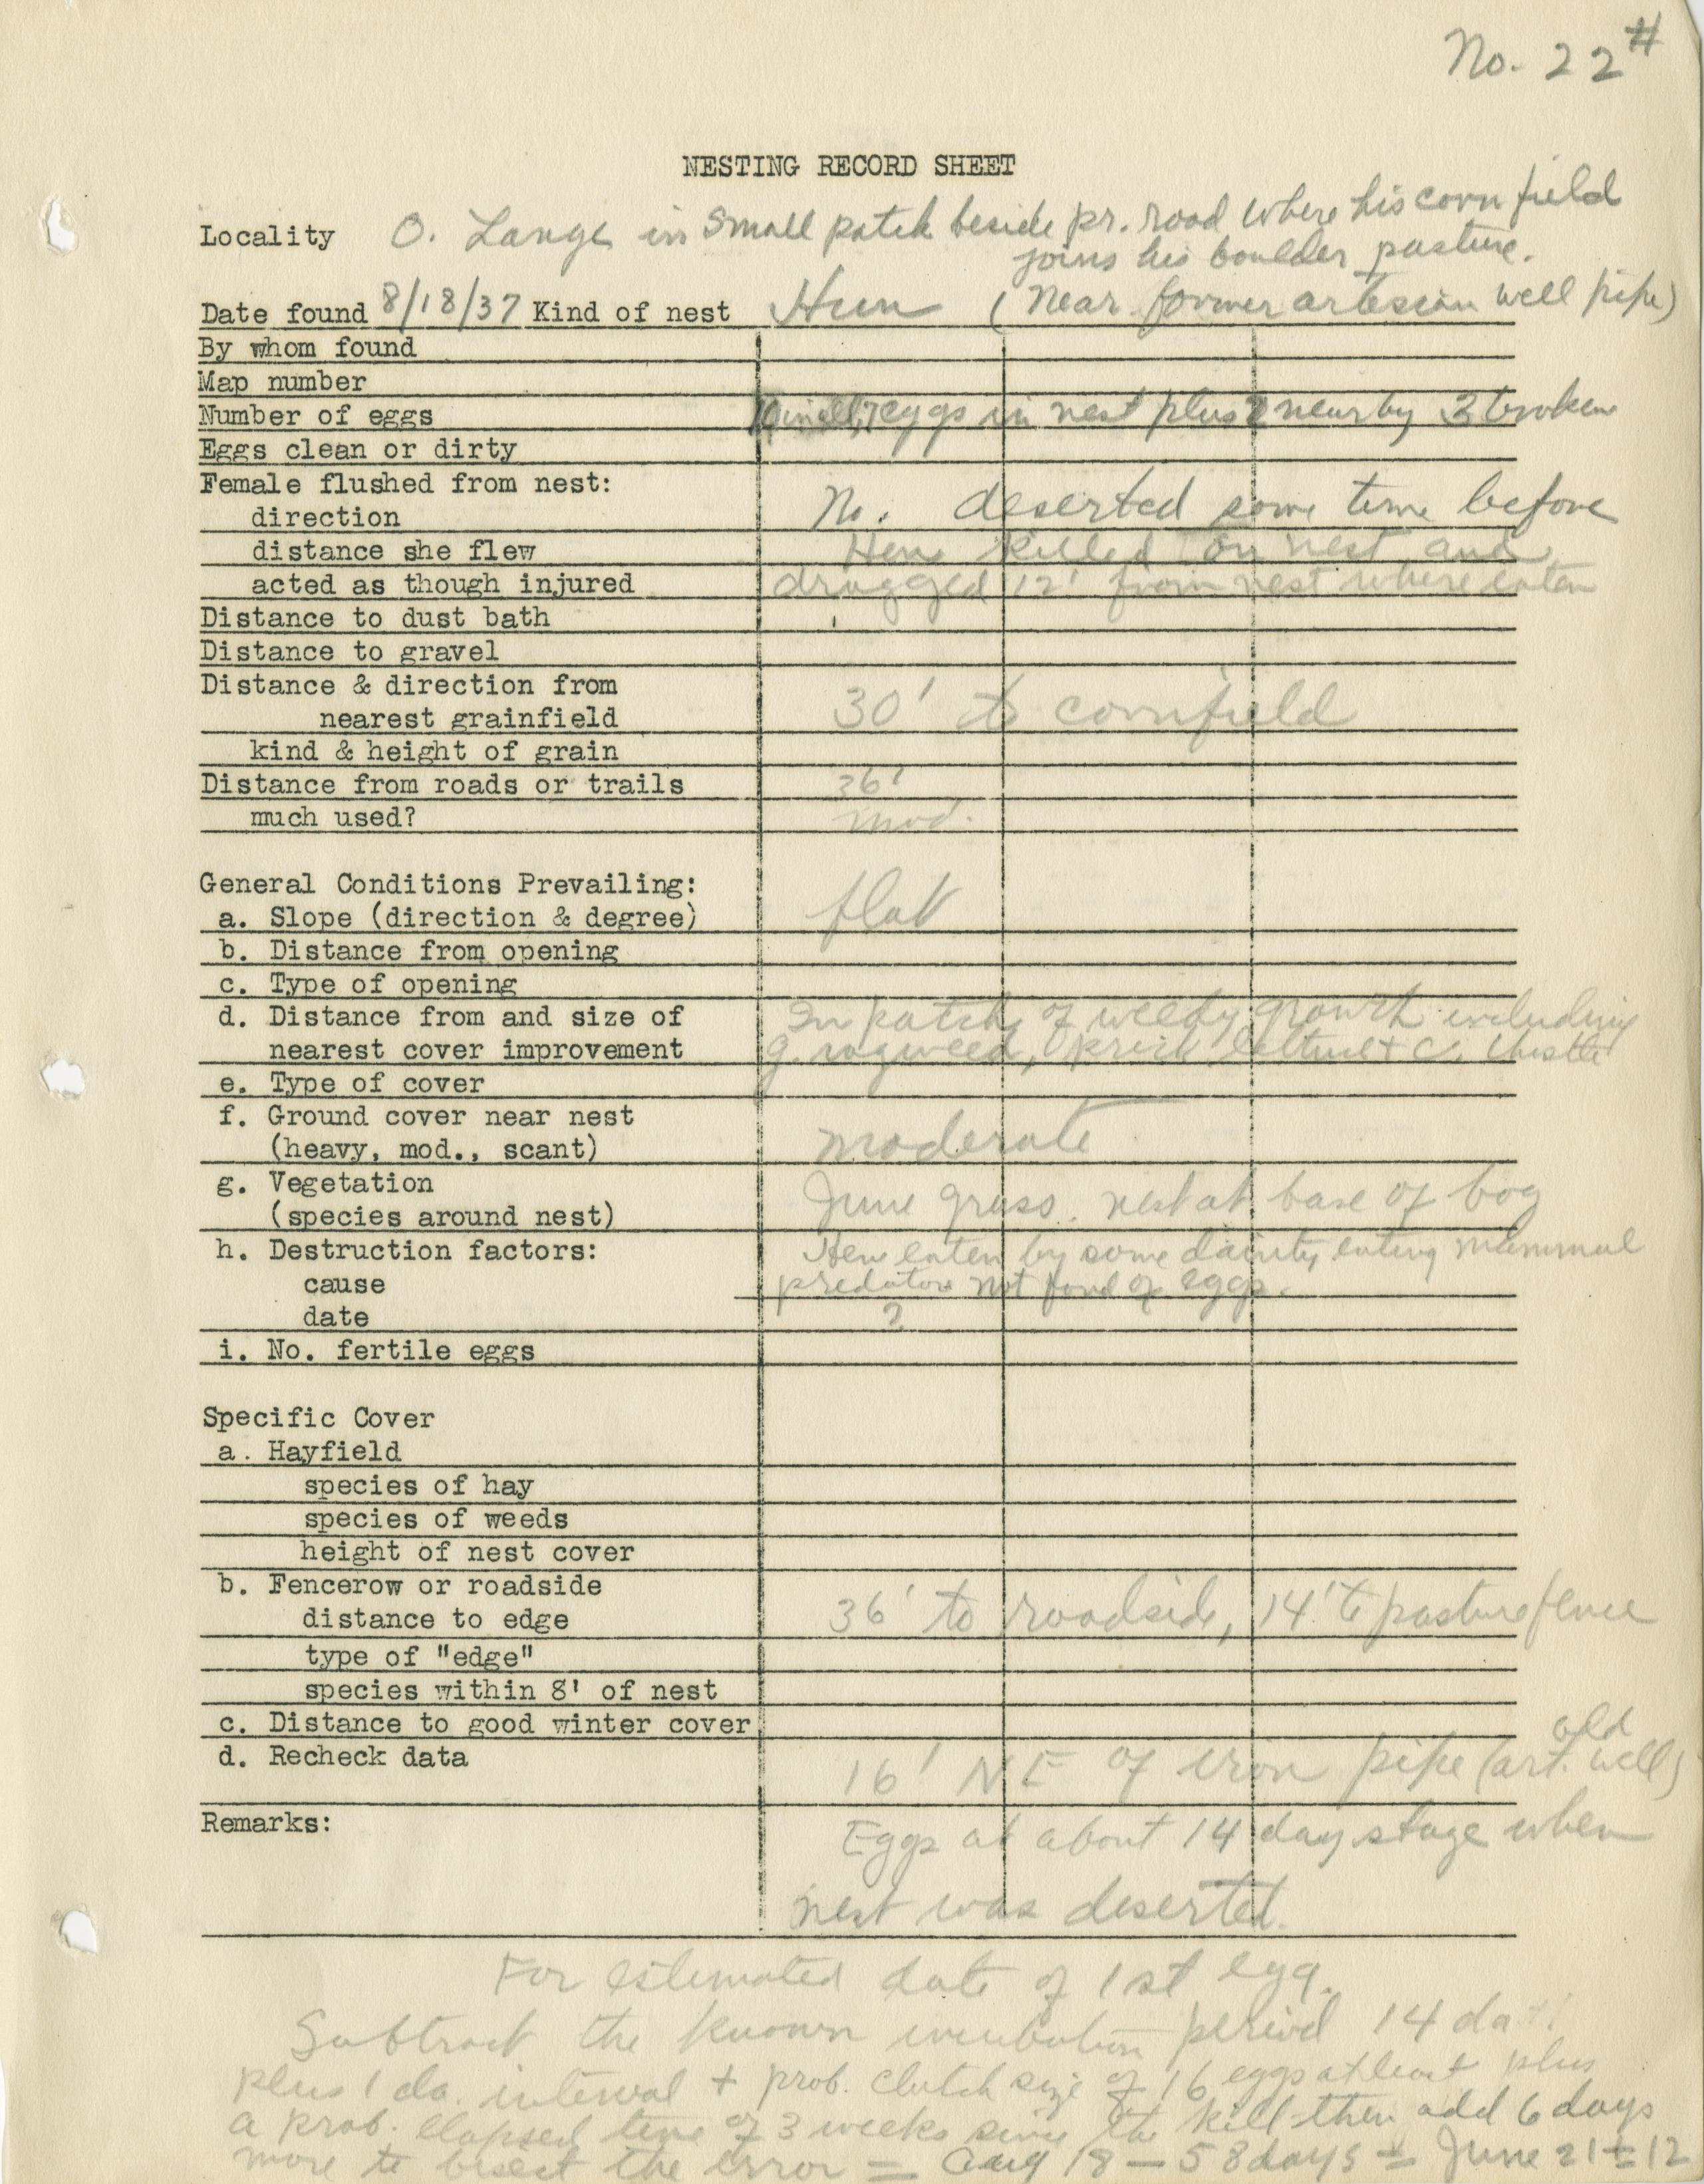 No. 22 #
NESTING RECORD SHEET
Locality O. Lange in small patch beside pr. road where his corn field
joins his boulder pasture.
Date found 8/18/37 Kind of nest Hun (Near former artesian well pipe)
By whom found
Map number
Number of eggs 7 eggs in nest plus 2 nearby 3 broken
Eggs clean or dirty
Female flushed from nest:
direction No. deserted some time before
distance she flew Hen killed on nest and
acted as though injured dragged 12' from nest where eaten
Distance to dust bath
Distance to gravel
Distance & direction from
nearest grainfield 30' to cornfield
kind & height of grain
Distance from roads or trails 36'
much used? mod.
General Conditions Prevailing:
a. Slope (direction & degree) flat
b. Distance from opening
c. Type of opening
d. Distance from and size of In patch of weedy growth including
nearest cover improvement g. ragweed, prick lettuce + C. thistle
e. Type of cover
f. Ground cover near nest
(heavy, mod., scant) moderate
g. Vegetation
(species around nest) June grass. nest at base of bog
h. Destruction factors: Hen eaten by some dainty eating mammal
cause predator not fond of eggs.
date ?
i. No. fertile eggs
Specific Cover
a. Hayfield
species of hay
species of weeds
height of nest cover
b. Fencerow or roadside
distance to edge 36' to roadside, 14' to pasture fence
type of "edge"
species within 8' of nest
c. Distance to good winter cover
old
d. Recheck data 16' NE of iron pipe (art. well)
Remarks: Eggs at about 14 day stage when
nest was deserted.
For estimated date of 1st egg.
Subtract the known incubation period 14 da
plus 1 da. interval + prob. clutch size of 16 eggs at least plus
a prob. elapsed time of 3 weeks since the kill then add 6 days
more to bisect the error = Aug 18 - 58 days = June 21 ± 12